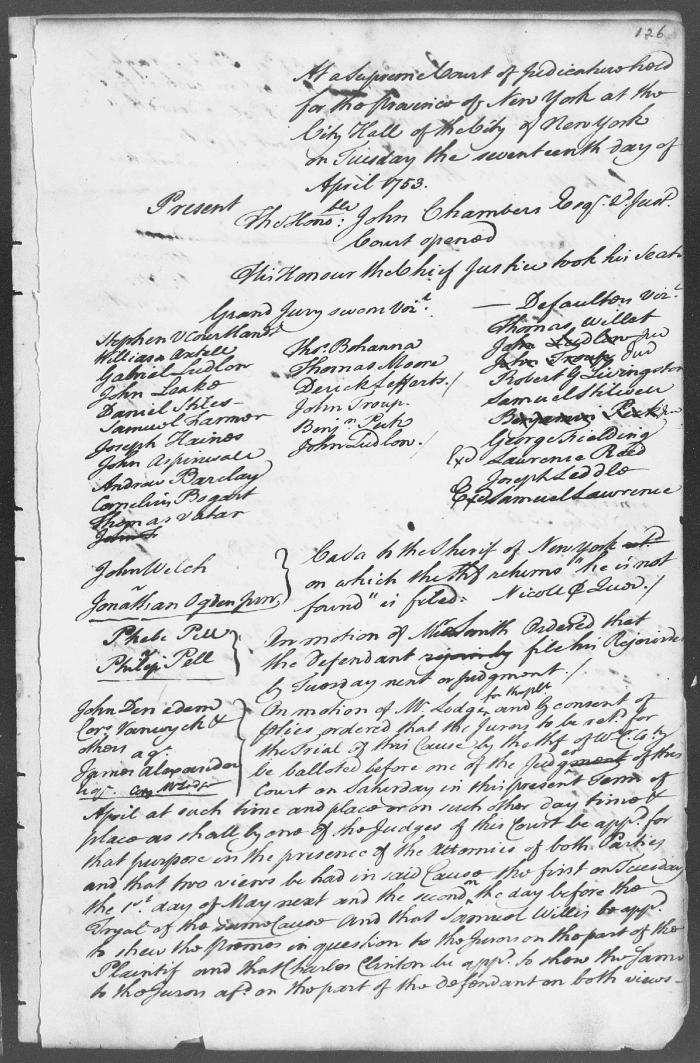 126
At a Supreme Court of Judicature held
for the Province of New York at the
City Hall of the City of New York
on Tuesday the seventeenth day of
April 1753.
Present
The Hono: ble John Chambers Esqr. 2d. Just.
Court opened
His Honour the Chief Justice took his Seat
Grand Jury sworn Vizt.
Stephen V Courtlandt
William Axtell
Gabriel Ludlow
John Leake
Daniel Stiles
Samuel Farmer
Joseph Haines
John Aspinwall
Andrew Barclay
Cornelius Bogart
Thomas Vatar
Thos. Bohanna
Thomas Moore
Derick Lefferts /
John Troup.
Benjn. Peck
John Ludlow /
— Defaulters Vizt.
Thomas Willet
John Ludlow
John Troup
Robert G Livingston
Samuel Stilwell
Benjamin Peck
George Fielding
Exd Laurence Reed
Joseph Leddle
Exd Samuel Lawrence
John Welch
Jonathan Ogden Junr.
Casa to the Sherif of New York
on which the Shf returns "he is not
found" is filed: Nicoll /
Phebe Pell
Philip Pell
On motion of Mr Smith Ordered that
the Defendant file his Rejoinder
by Tuesday next or Judgment /
John Den edem
Corns Vanwyck &
others agt.
James Alexander
On motion of Mr. Lodge for the plt and by consent of
pties ordered that the Jurors to be retd. for
the trial of this Cause by the Shf of
be balloted before one of the Judges of this
Court on Saturday in this present Term of
April at such time and place or on such other day time &
place as shall by one of the Judges of this Court be appd. for
that purpose in the presence of the Attornies of both Parties
and that two views be had in said Cause the first on Tuesday
the 1st. day of May next and the second on the day before the
Tryal of the same Cause And that Samuel Willis be appd.
to shew the premes in question to the Jurors on the part of the
Plaintif and that Charles Clinton be appd. to shew the Same
to the Jurors afd. on the part of the defendant on both views —